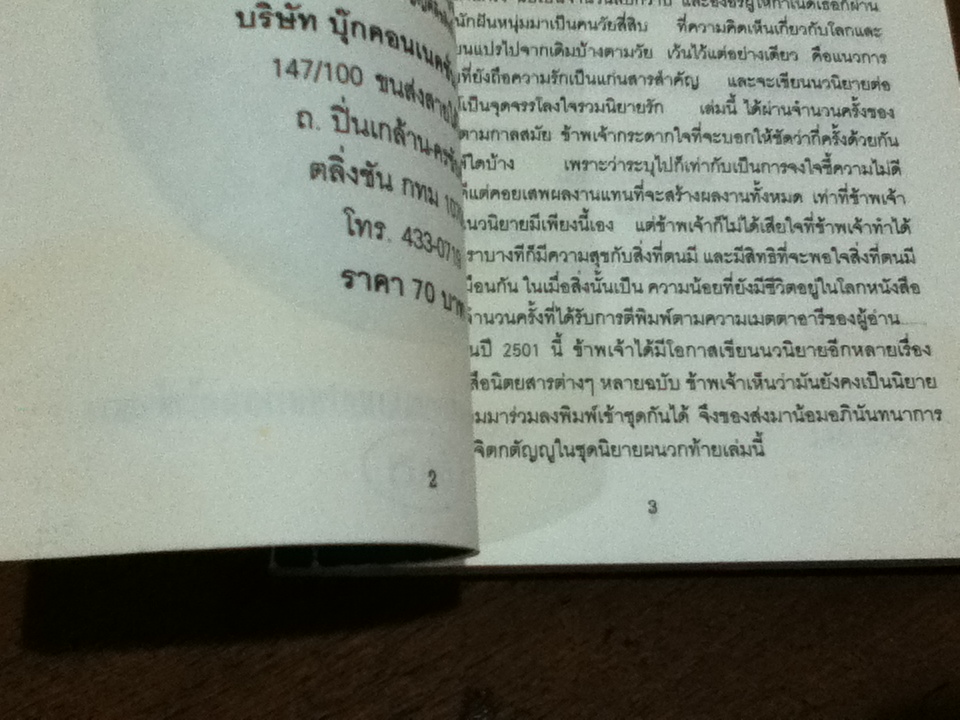 บริษัท บุ๊กคอนเนคชั่น
147/100 ขนส่งสายใต้
ถ. ปิ่นเกล้า-นครชัยศรี
ตลิ่งชัน กทม
โทร. 433-071
ราคา 70 บาท
2
และองอรผู้ให้กำเนิดเธอก็ผ่าน
นักฝันหนุ่มมาเป็นคนวัยสี่สิบ ที่ความคิดเห็นเกี่ยวกับโลกและ
แปรไปจากเดิมบ้างตามวัย เว้นไว้แต่อย่างเดียว คือแนวการ
ที่ยังถือความรักเป็นแก่นสารสำคัญ และจะเขียนนวนิยายต่อ
เป็นจุดจรรโลงใจรวมนิยายรัก เล่มนี้ ได้ผ่านจำนวนครั้งของ
ตามกาลสมัย ข้าพเจ้ากระดากใจที่จะบอกให้ชัดว่ากี่ครั้งด้วยกัน
ใดบ้าง เพราะว่าระบุไปก็เท่ากับเป็นการจงใจชี้ความไม่ดี
แต่คอยเสพผลงานแทนที่จะสร้างผลงานทั้งหมด เท่าที่ข้าพเจ้า
นวนิยายมีเพียงนี้เอง แต่ข้าพเจ้าก็ไม่ได้เสียใจที่ข้าพเจ้าทำได้
ราบางทีก็มีความสุขกับสิ่งที่ตนมี และมีสิทธิที่จะพอใจสิ่งที่ตนมี
มือนกัน ในเมื่อสิ่งนั้นเป็น ความน้อยที่ยังมีชีวิตอยู่ในโลกหนังสือ
จำนวนครั้งที่ได้รับการตีพิมพ์ตามความเมตตาอารีของผู้อ่าน
นปี 2501 นี้ ข้าพเจ้าได้มีโอกาสเขียนนวนิยายอีกหลายเรื่อง
สือนิตยสารต่างๆ หลายฉบับ ข้าพเจ้าเห็นว่ามันยังคงเป็นนิยาย
มมาร่วมลงพิมพ์เข้าชุดกันได้ จึงของส่งมาน้อมอภินันทนาการ
จิตกตัญญูในชุดนิยายผนวกท้ายเล่มนี้
3